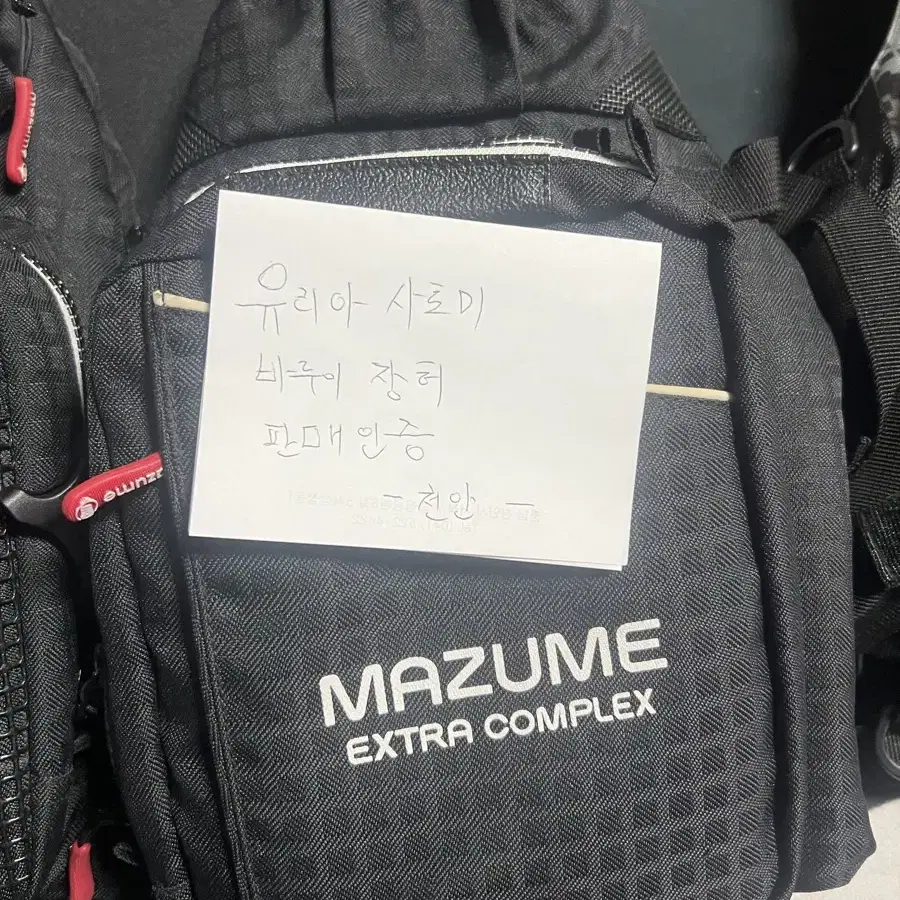 유리아 사토미
바루이 장터
판매인증
- 천안 -
mazume
MAZUME
EXTRA COMPLEX